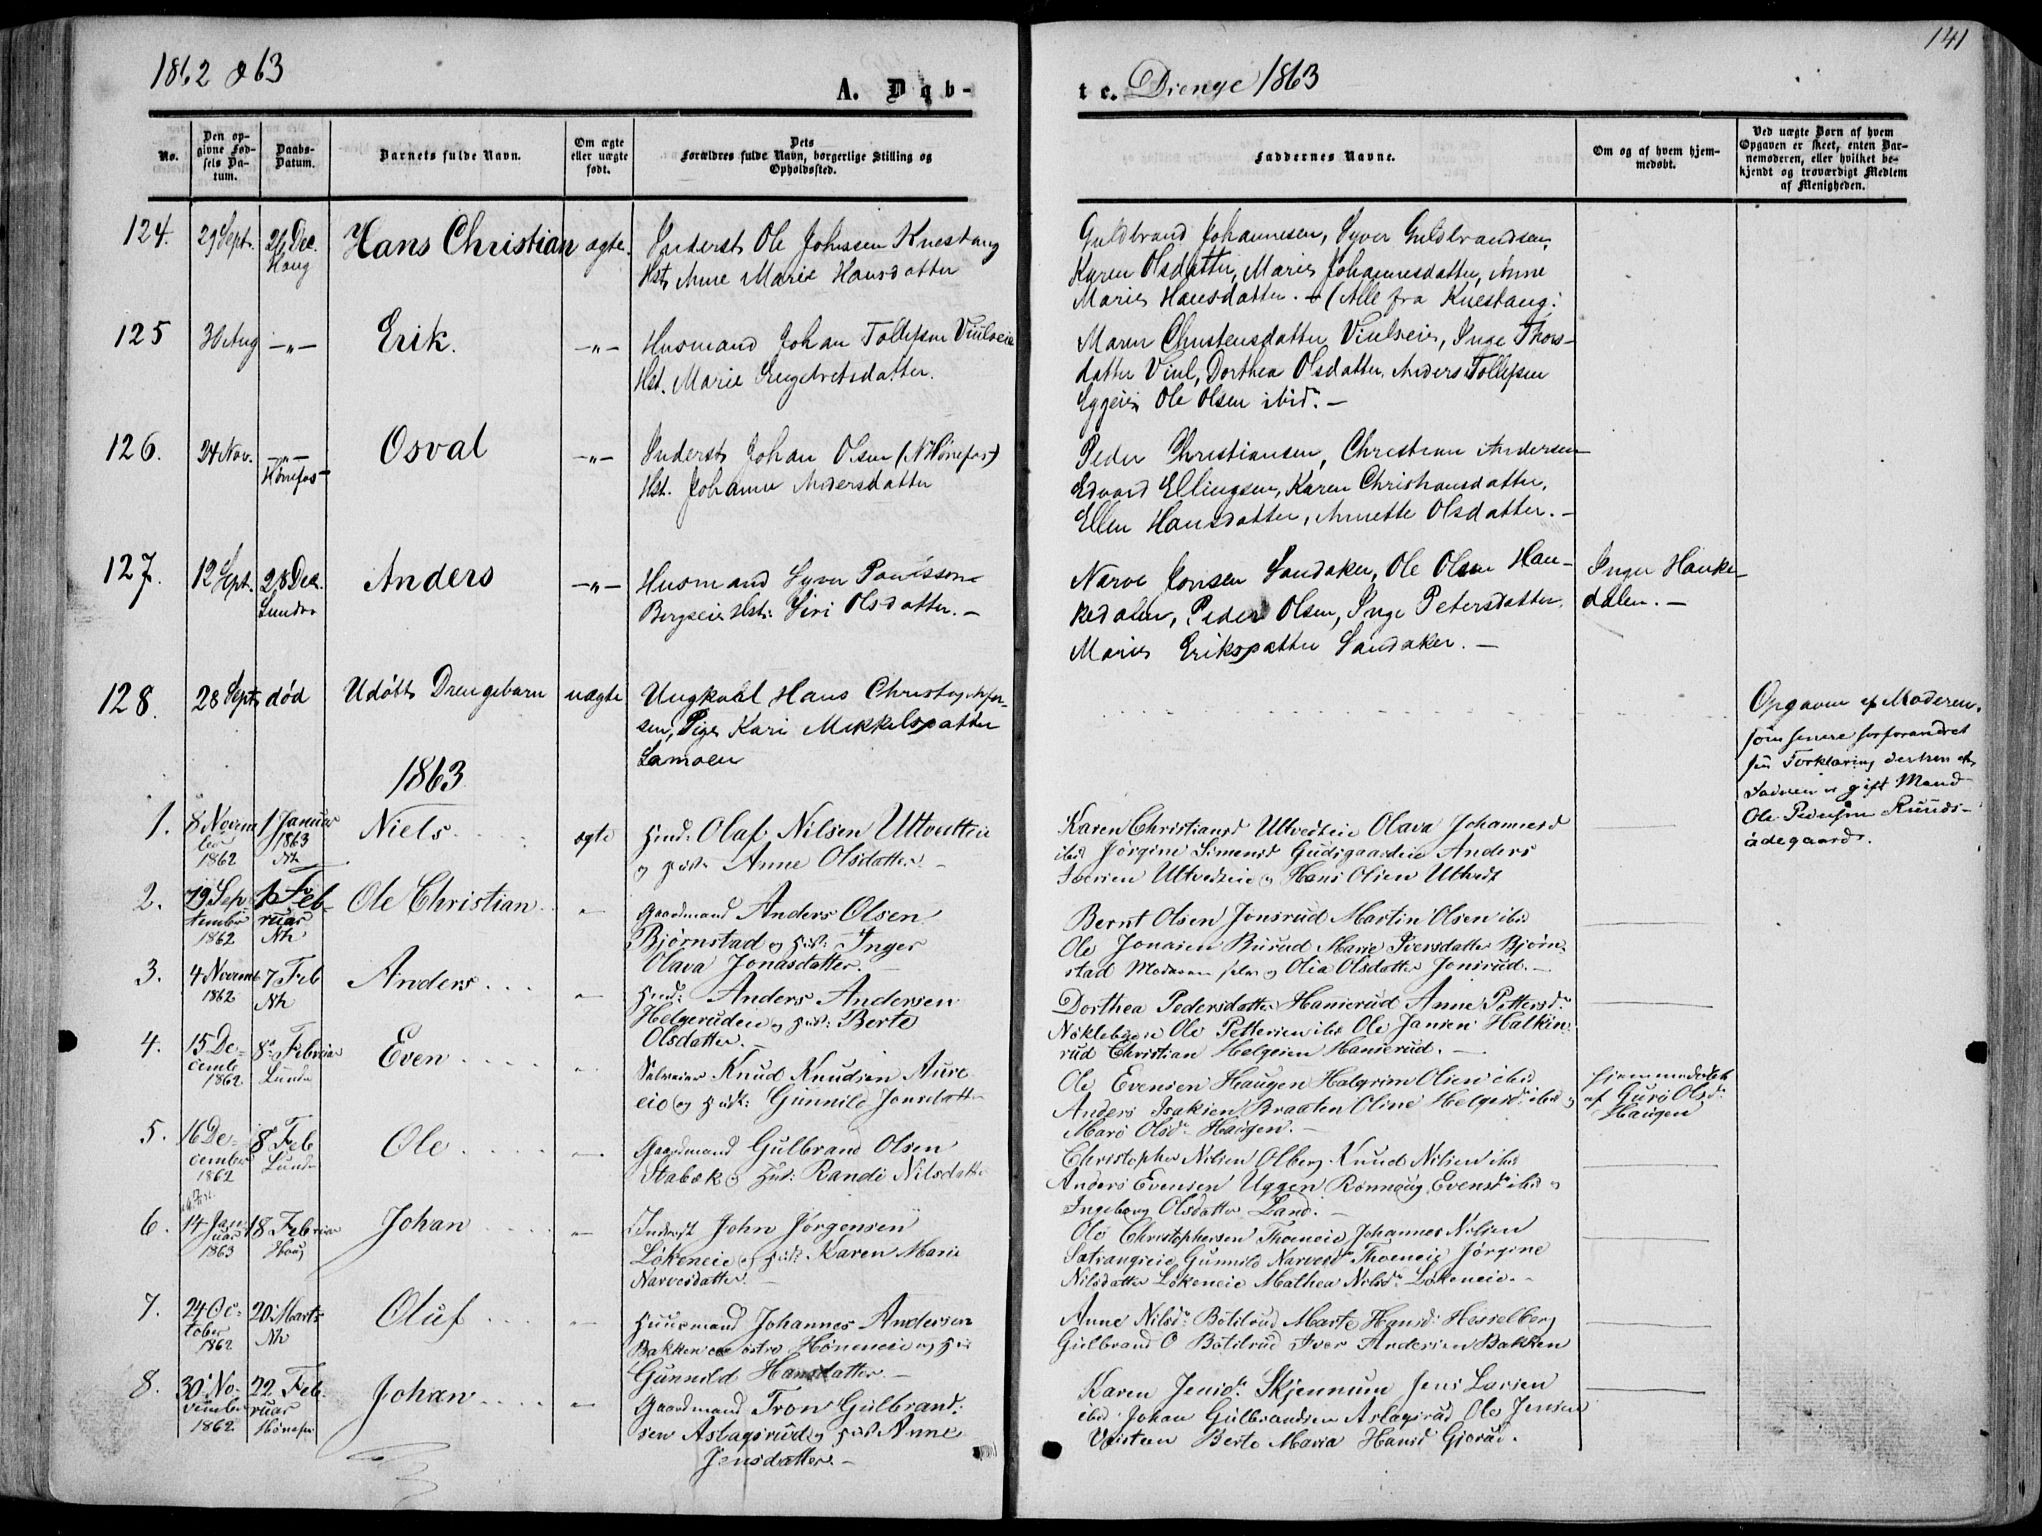 1862 & 63
A. Døb-
te. Drenge 1863
141
No.
Den op-
givne Fød-
sels Da-
tum.
Daabs-
Datum.
Barnets fulde Navn.
Om ægte
eller uægte
født.
Dets
Forældres fulde Navn, borgerlige Stilling og
Opholdssted.
Faddernes Navne.
Om og af hvem hjem-
medøbt.
Ved uægte Børn af hvem
Opgaven er skeet, enten Bar-
nemoderen, eller hvilket be-
kjendt og troværdigt Medlem
af Menigheden.
124. 29 Sept. 26 Dec. Hans Christian ægte. Inderst Ole Johnssen Knestang
Haug
Hst. Anne Marie Hansdatter
Guldbrand Johannesen, Syver Guldbrandsen,
Karen Olsdatter, Marie Johannesdatter, Anne
Marie Hansdatter. - (Alle fra Knestang.
125 30 Aug -"- Erik. -"- Husmand Johan Tollefsen Viulseie
Hst. Marie Engebretsdatter.
Maren Christensdatter Viulseie, Inge Thors-
datter Viul, Dorthea Olsdatter, Anders Tollefsen
Eggeie, Ole Olsen ibid. -
126. 24 Nov. -"- Osval -"- Inderst Johan Olsen (N Hønefos)
Hønefos
Hst. Johanne Andersdatter
Peder Christiansen, Christian Andersen
Edvard Ellingsen, Karen Christiansdatter,
Ellen Hansdatter, Annette Olsdatter. -
127. 12 Sept. 28 Dec. Anders -"- Husmand Syver Paulsson
Lunder
Bergseie Hst. Siri Olsdatter. -
Narve Jonsen Sandaker, Ole Olsen Hau-
kedalen, Peder Olsen, Inge Petersdatter,
Marie Eriksdatter Sandaker. -
Inger Hauke-
dalen. -
128. 28 Sept. død Udøbt Drengebarn uægte Ungkarl Hans Christophers-
sen, Pige Kari Mikkelsdatter
Lamoen
Opgaven af Moderen,
som senere har forandret
sin Forklaring derhen at
Faderen er gift Mand
Ole Pedersen Ruuds-
ødegaard.
1863
1. 8 Novem- 1 Januar Niels. ægte Huusd: Olaf Nilsen Utvedteie
ber 1863
1862 Nh
og Hust: Anne Olsdatter. -
Karen Christiansd Utvedteie Olava Johannesd
ibid Jørgine Simensd Gudsgaardeie Anders
Iversen Utvedteie og Hans Olsen Utvedt
2. 29 Sep- 1 Feb- Ole Christian - Gaardmand Anders Olsen
tember ruar
1862 Nh
Bjørnstad og Hust: Inger
Olava Jonasdatter. -
Bernt Olsen Jonsrud Martin Olsen ibid
Ole Jonasen Burud Marie Iversdatter Bjørn-
stad Moderen selv og Olia Olsdatter Jonsrud. -
3. 4 Novemb 7 Feb Anders - Husd: Anders Andersen
1862 Nh
Helgerudeie og Hust: Berte
Olsdatter. -
Dorthea Pedersdatter Hanserud Anne Pettersd:
Nøklebyeie Ole Pettersen ibid Ole Jansen Halkin-
rud Christian Helgesen Hanserud. -
4. 15 De- 8 Februar Even - Selveier Knud Knudsen Aure-
cemb Lunde
1862
eie og Hust: Gunnild Jonsdatter
Ole Evensen Haugen Halgrim Olsen ibid
Anders Isaksen Braaten Oline Helgesd: ibid og
Marø Olsd: Haugen. -
Hjemmedøbt
af Gurø Olsd:
Haugen
5. 16 De- 8 Feb Ole - Gaardmand Gulbrand Olsen
cember Lunde
1862
Stabæk og Hust: Randi Nilsdatter
Christopher Nilsen Olberg Knud Nilsen ibid
Anders Evensen Uggen Rønnaug Evensd: ibid og
Ingeborg Olsdatter Land. -
6. 14 Jan- 18 Februar Johan - Inderst John Jørgensen
uar Haug
1863
Løkeneie og Hust: Karen Marie
Narvesdatter. -
Ole Christophersen Thoeneie Johannes Nilsen
Sætrangeie Gunnild Narvesd: Thoeneie Jørgine
Nilsdatter Løkeneie Mathea Nilsd: Løkeneie. -
7. 24 Oc- 20 Marts Oluf - Huusmand Johannes Andersen
tober Nh
1862
Bakken østre Høneneie og Hust:
Gunnild Hansdatter. -
Anne Nilsd: Botilrud Marte Hansd: Hesselberg
Gulbrand O Botilrud Iver Andersen Bakken
8. 30 No- 22 Feb- Johan - Gaardmand Tron Gulbrand-
vember ruar
1862 Hønefos
sen Aslagsrud og Hust Anne
Jensdatter. -
Karen Jensd: Skjennum Jens Larsen
ibid Johan Gulbrandsen Aslagsrud Ole Jensen
Veisteen Berte Maria Hansd Gjørud.